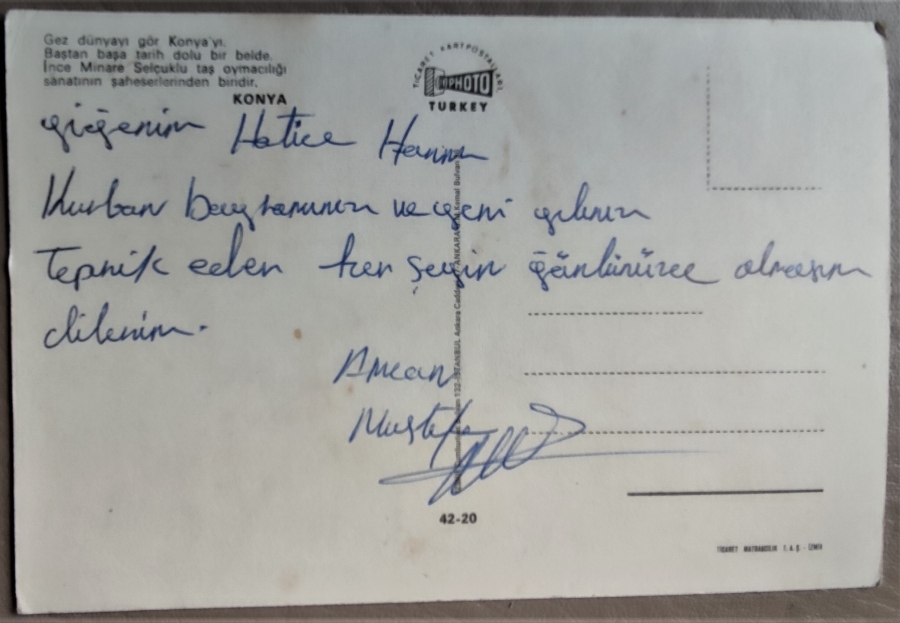 Gez dünyayı gör Konya'yı.
Baştan başa tarih dolu bir belde.
İnce Minare Selçuklu taş oymacılığı
sanatının şaheserlerinden biridir.
KONYA
TİCARET KARTPOSTALLARI
PHOTO
TURKEY
yiğenim Hatice Hanım
Kurban bayramınızı ve yeni yılınızı
Tepnik eder her şeyin gönlünüzce olmasını
dilerim.
Amcan
Mustafa
132-İSTANBUL Ankara Caddesi ANKARA Kemal Bulvarı
42-20
TİCARET MATBAACILIK T.A.Ş. - İZMİR